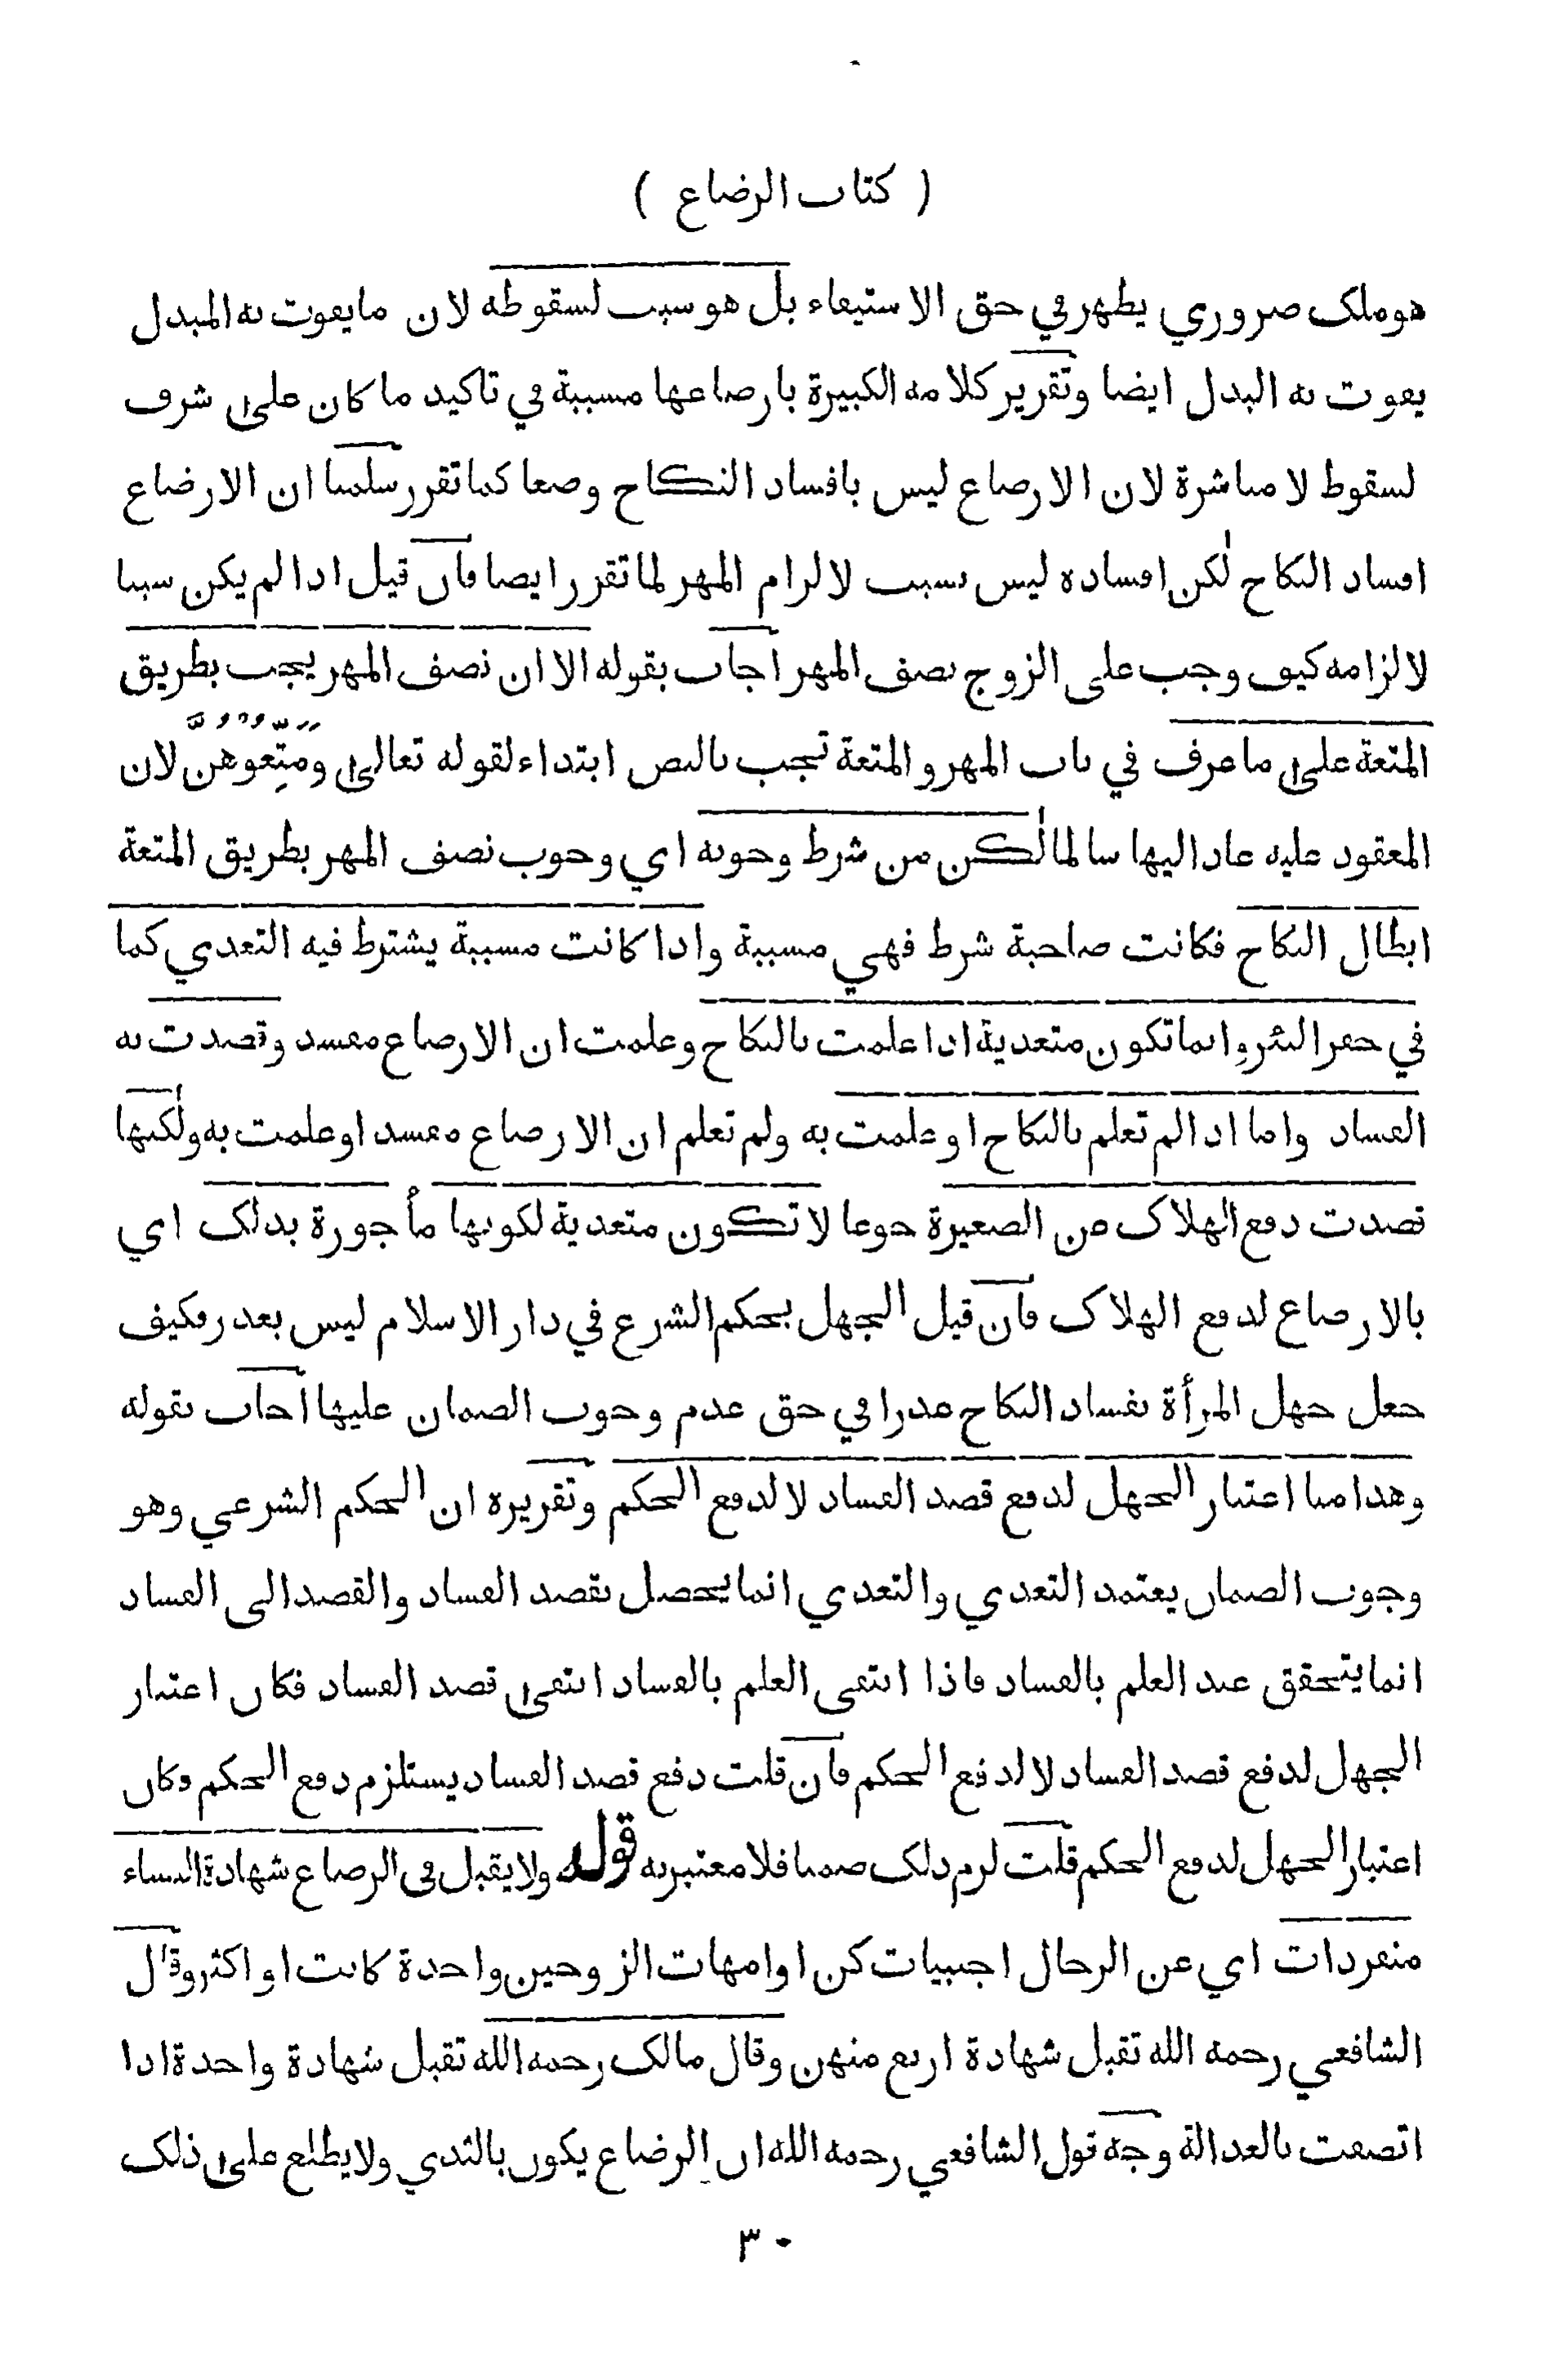 ( كتاب الرضاع )
هو ملك ضروري يظهر في حق الاستيفاء بل هو سبب لسقوطه لان ما يفوت به المبدل
يفوت به البدل ايضا وتقرير كلامه الكبيرة بارضاعها مسببة في تاكيد ما كان على شرف
لسقوط لا مباشرة لان الارضاع ليس بافساد النكاح وضعا كما تقرر سلمنا ان الارضاع
افساد النكاح لكن افساده ليس بسبب لالزام المهر لما تقرر ايضا فان قيل اذا لم يكن سببا
لالزامه كيف وجب على الزوج نصف المهر اجاب بقوله الا ان نصف المهر يجب بطريق
المتعة على ما عرف في باب المهر و المتعة تجب بالنص ابتداء لقوله تعالى وَمَتِّعُوهُنَّ لان
المعقود عليه عاد اليها سالما لكن من شرط وجوبه اي وجوب نصف المهر بطريق المتعة
ابطال النكاح فكانت صاحبة شرط فهي مسببة واذا كانت مسببة يشترط فيه التعدي كما
في حفر البئر وانما تكون متعدية اذا علمت بالنكاح وعلمت ان الارضاع مفسد وقصدت به
الفساد واما اذا لم تعلم بالنكاح او علمت به ولم تعلم ان الارضاع مفسد او علمت به ولكنها
قصدت دفع الهلاك من الصغيرة جوعا لا تكون متعدية لكونها مأجورة بذلك اي
بالارضاع لدفع الهلاك فان قيل الجهل بحكم الشرع في دار الاسلام ليس بعذر فكيف
جعل جهل المرأة بفساد النكاح عذرا في حق عدم وجوب الضمان عليها اجاب بقوله
وهذا منا اعتبار الجهل لدفع قصد الفساد لا لدفع الحكم وتقريره ان الحكم الشرعي وهو
وجوب الضمان يعتمد التعدي والتعدي انما يحصل بقصد الفساد والقصد الى الفساد
انما يتحقق عند العلم بالفساد فاذا انتفى العلم بالفساد انتفى قصد الفساد فكان اعتبار
الجهل لدفع قصد الفساد لا لدفع الحكم فان قلت دفع قصد الفساد يستلزم دفع الحكم فكان
اعتبار الجهل لدفع الحكم قلت لزم ذلك ضمنا فلا معتبر به قوله ولا يقبل في الرضاع شهادة النساء
منفردات اي عن الرجال اجنبيات كن او امهات الزوجين واحدة كانت او اكثر وقال
الشافعي رحمه الله تقبل شهادة اربع منهن وقال مالك رحمه الله تقبل شهادة واحدة اذا
اتصفت بالعدالة وجه قول الشافعي رحمه الله ان الرضاع يكون بالثدي ولا يطلع على ذلك
٣٠